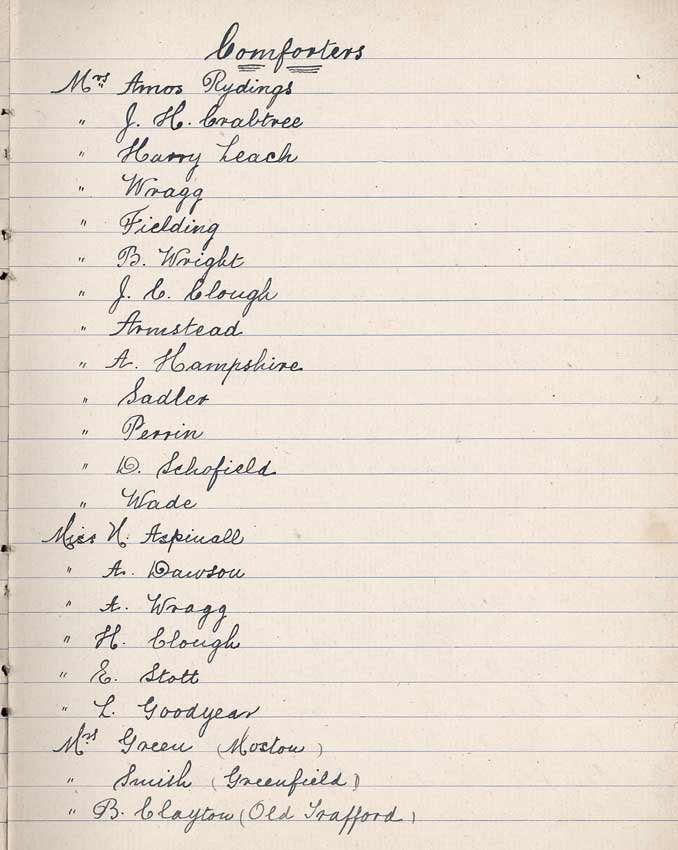 Comforters
Mrs Amos Rydings
" J. H. Crabtree
" Harry Leach
" Wragg
" Fielding
" B. Wright
" J. C. Clough
" Armstead
" A. Hampshire
" Sadler
" Perrin
" D. Schofield
" Wade
Miss N. Aspinall
" A. Dawson
" A. Wragg
" H. Clough
" E. Stott
" L. Goodyear
Mrs Green (Moston)
" Smith (Greenfield)
" B. Clayton (Old Trafford)